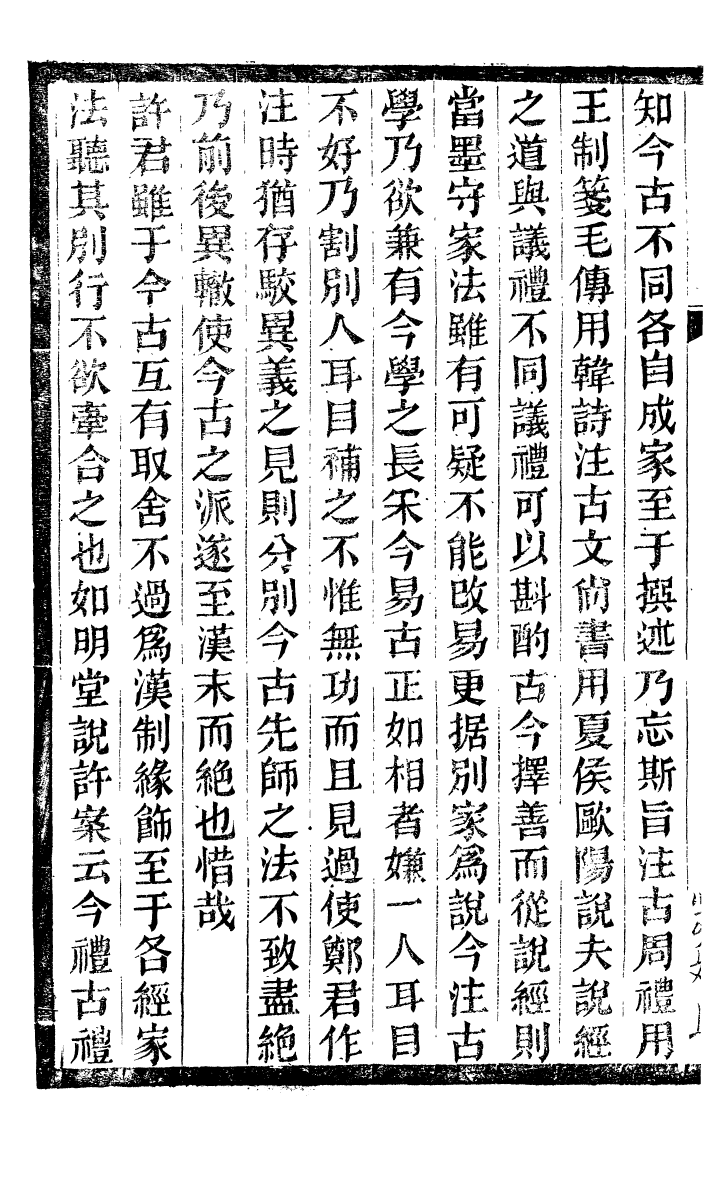 知今古不同各自成家至于撰述乃忘斯旨注古周禮用
王制箋毛傳用韓詩注古文尙書用夏侯歐陽說夫說經
之道與議禮不同議禮可以斟酌古今擇善而從說經則
當墨守家法雖有可疑不能改易更据別家爲說今注古
學乃欲兼有今學之長采今易古正如相者嫌一人耳目
不好乃割別人耳目補之不惟無功而且見過使鄭君作
注時猶存駮異義之見則分別今古先師之法不致盡絕
乃前後異轍使今古之派遂至漢末而絕也惜哉
許君雖于今古互有取舍不過爲漢制緣飾至于各經家
法聽其別行不欲牽合之也如明堂說許案云今禮古禮